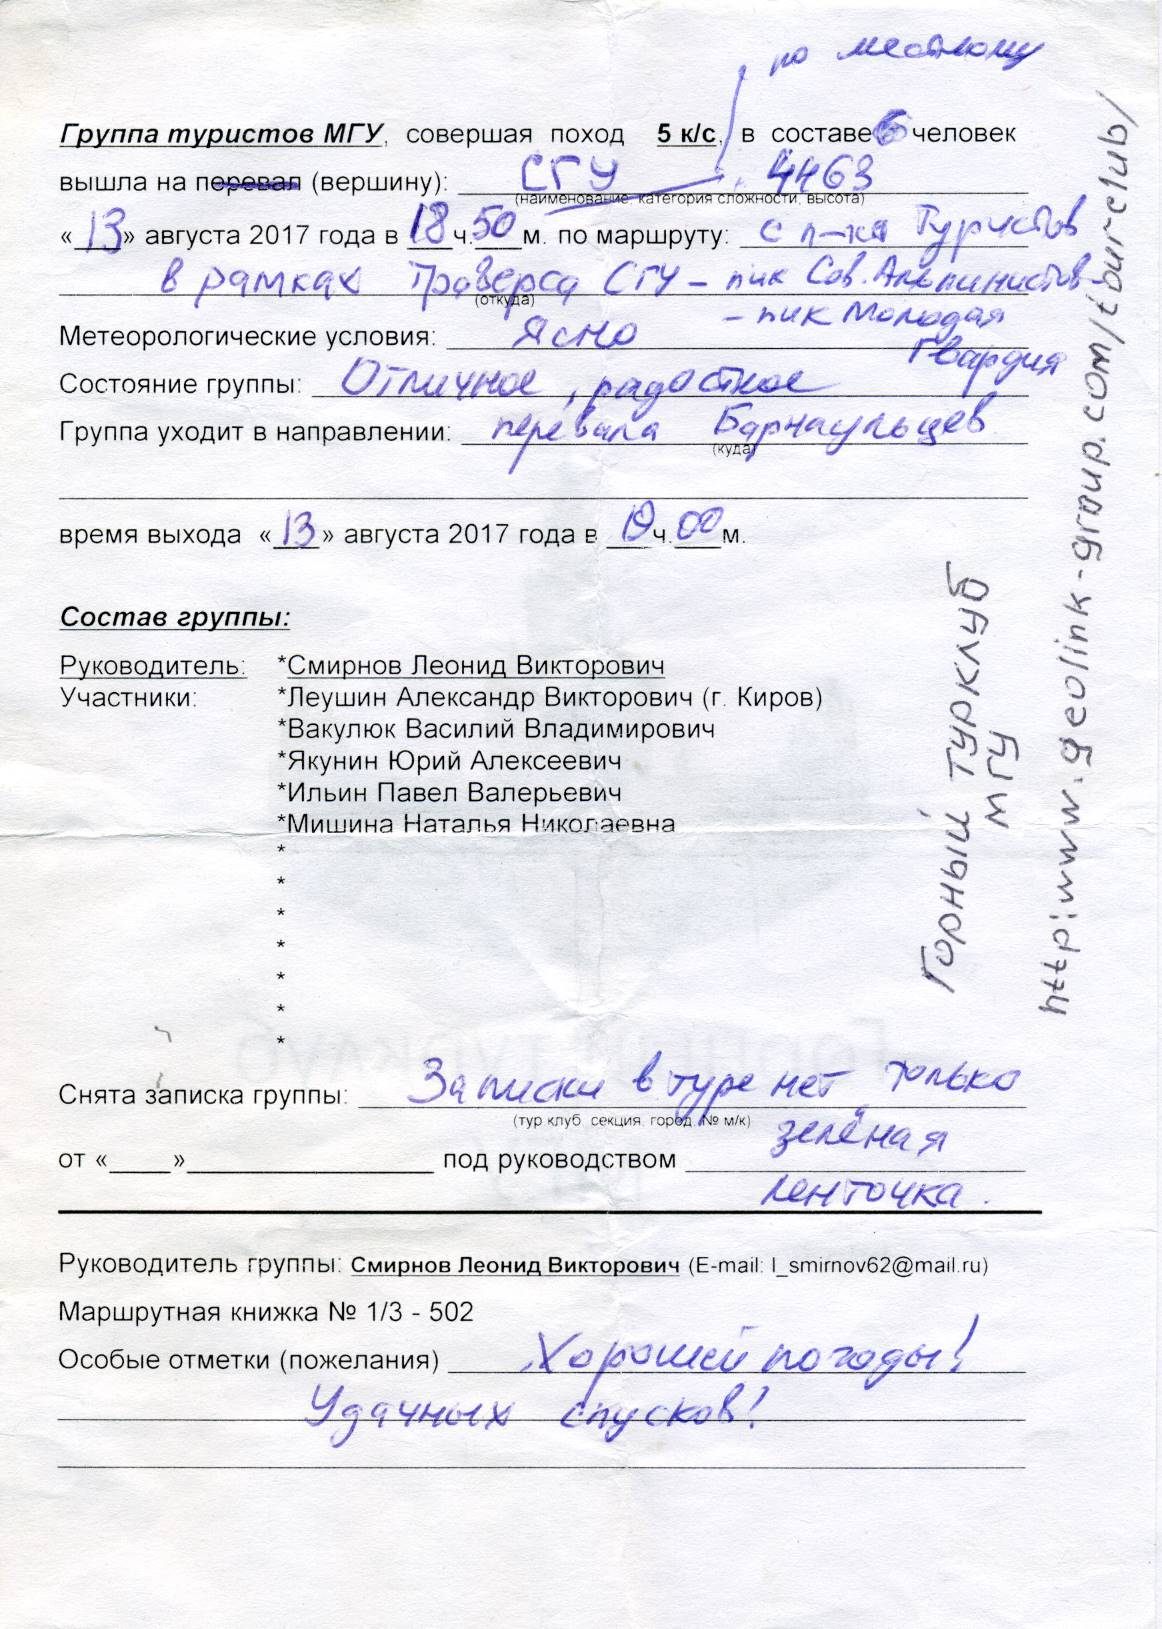 по местному
Группа туристов МГУ, совершая поход 5 к/с, в составе 6 человек
вышла на перевал (вершину): СГУ, 4463
(наименование, категория сложности, высота)
«13» августа 2017 года в 18 ч. 50 м. по маршруту: с п-ка Туристов
в рамках Траверса СГУ – пик Сов. Альпинистов –
(откуда)
– пик Молодая
Гвардия
Метеорологические условия: Ясно
Состояние группы: Отличное, радостное
Группа уходит в направлении: перевала Барнаульцев
(куда)
время выхода «13» августа 2017 года в 19 ч. 00 м.
Состав группы:
Руководитель: *Смирнов Леонид Викторович
Участники: *Леушин Александр Викторович (г. Киров)
*Вакулюк Василий Владимирович
*Якунин Юрий Алексеевич
*Ильин Павел Валерьевич
*Мишина Наталья Николаевна
*
*
*
*
*
*
*
Горный турклуб
МГУ
http:www.geolink-group.com/tour-club/
Снята записка группы: Записки в туре нет, только
(тур клуб, секция, город, № м/к)
зелёная
от «____»__________________ под руководством
ленточка.
Руководитель группы: Смирнов Леонид Викторович (E-mail: l_smirnov62@mail.ru)
Маршрутная книжка № 1/3 - 502
Особые отметки (пожелания) Хорошей погоды!
Удачных спусков!